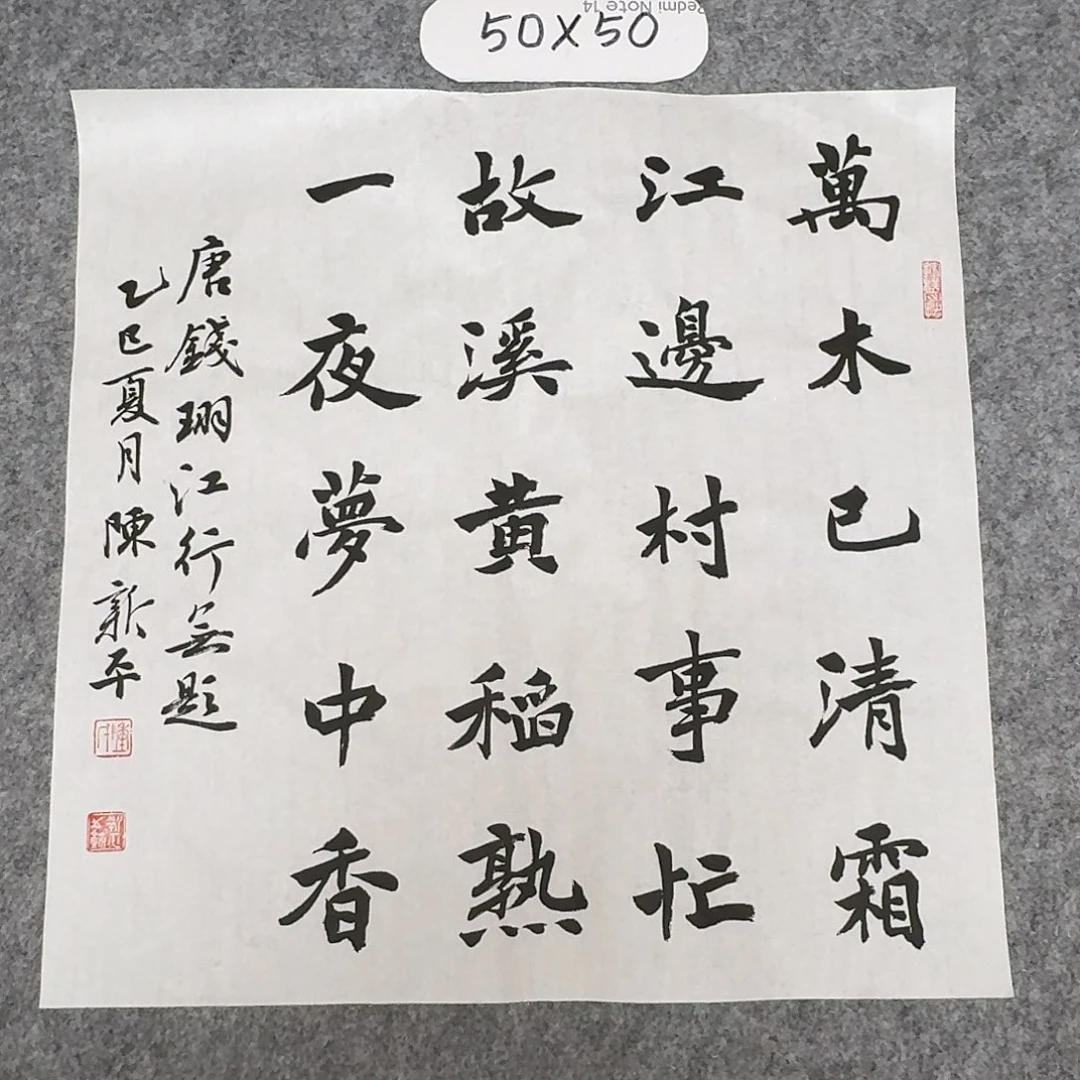 Redmi Note 14
50X50
萬木已清霜
江邊村事忙
故溪黄稻熟
一夜夢中香
唐錢珝江行無題
乙巳夏月陳新平